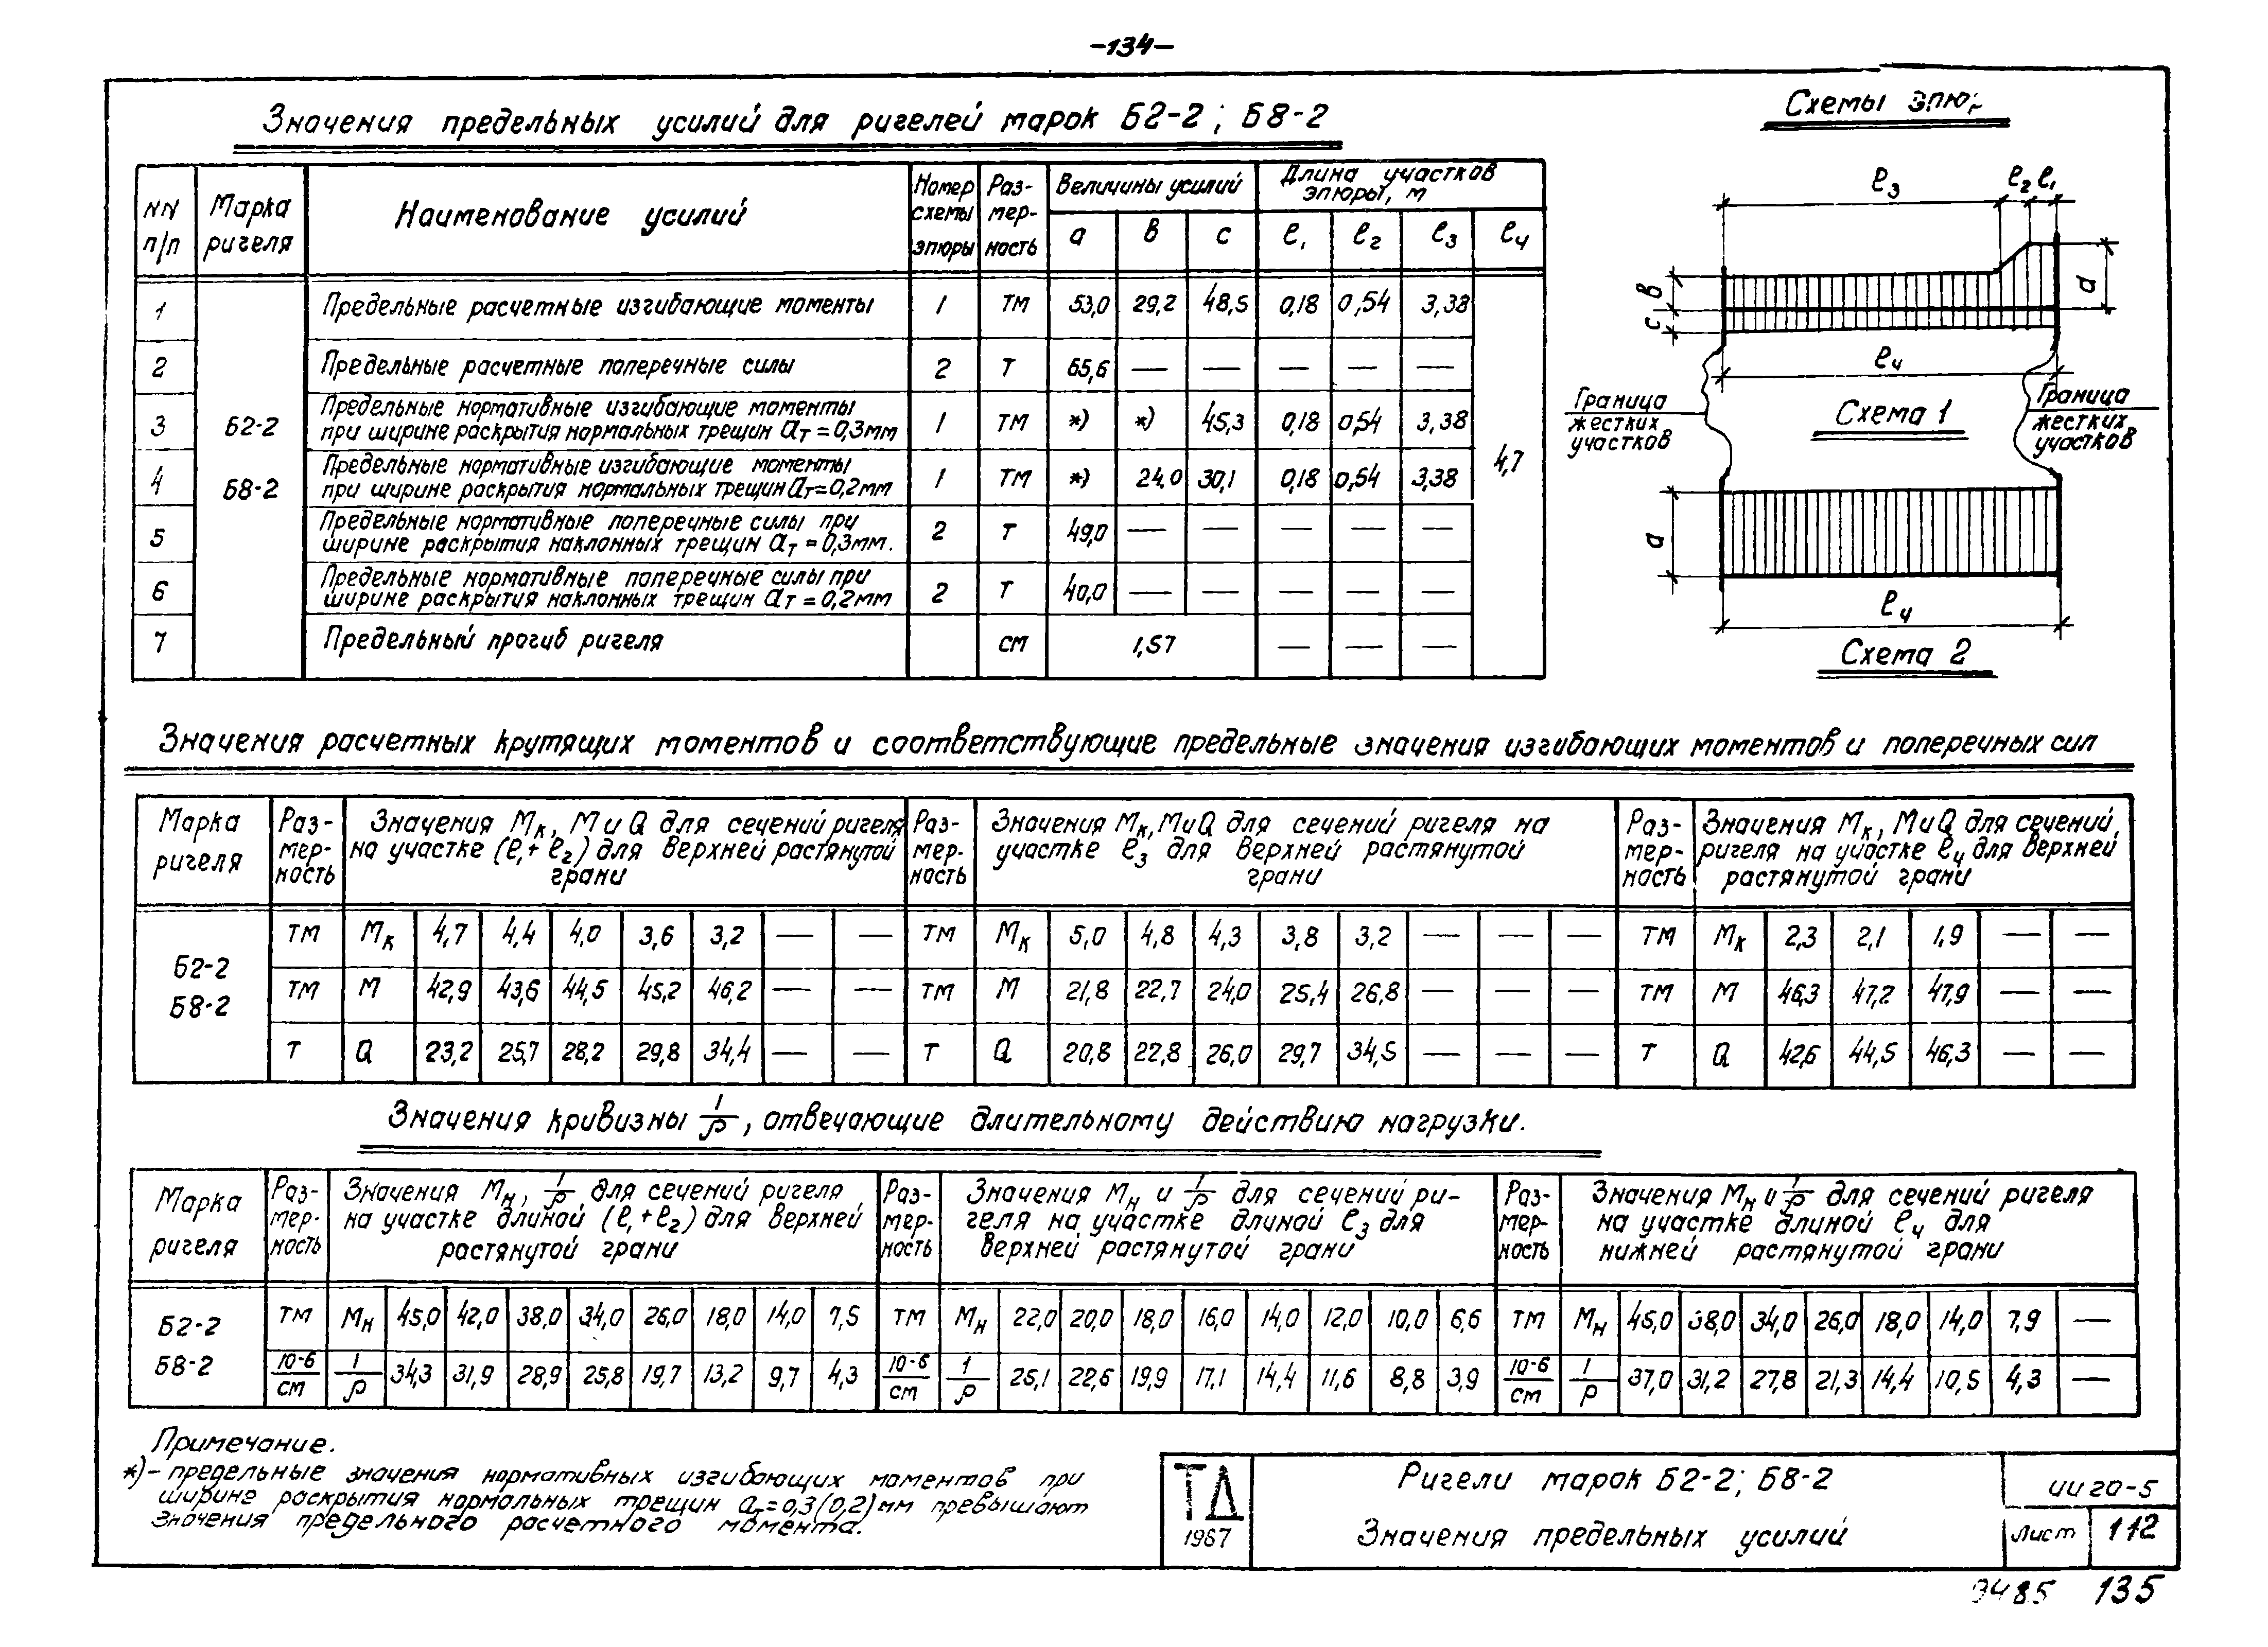 -134-
Значения предельных усилий для ригелей марок Б2-2; Б8-2
Схемы эпюр
NN п/п | Марка ригеля | Наименование усилий | Номер схемы эпюры | Раз-мер-ность | Величины усилий | Длина участков эпюры, м
а | в | с | ℓ₁ | ℓ₂ | ℓ₃ | ℓ₄
Б2-2
Б8-2
4,7
1 | Предельные расчетные изгибающие моменты | 1 | тм | 53,0 | 29,2 | 48,5 | 0,18 | 0,54 | 3,38
2 | Предельные расчетные поперечные силы | 2 | т | 65,6 | — | — | — | — | —
3 | Предельные нормативные изгибающие моменты
при ширине раскрытия нормальных трещин aт=0,3мм | 1 | тм | *) | *) | 45,3 | 0,18 | 0,54 | 3,38
4 | Предельные нормативные изгибающие моменты
при ширине раскрытия нормальных трещин aт=0,2мм | 1 | тм | *) | 24,0 | 30,1 | 0,18 | 0,54 | 3,38
5 | Предельные нормативные поперечные силы при
ширине раскрытия наклонных трещин aт=0,3мм. | 2 | т | 49,0 | — | — | — | — | —
6 | Предельные нормативные поперечные силы при
ширине раскрытия наклонных трещин aт=0,2мм | 2 | т | 40,0 | — | — | — | — | —
7 | Предельный прогиб ригеля | см | 1,57 | — | — | —
ℓ₃ ℓ₂ ℓ₁
в
с
а
ℓ₄
Граница
жестких
участков
Схема 1
Граница
жестких
участков
а
ℓ₄
Схема 2
Значения расчетных крутящих моментов и соответствующие предельные значения изгибающих моментов и поперечных сил
Марка ригеля | Раз-мер-ность | Значения Mк, M и Q для сечений ригеля на участке (ℓ₁+ℓ₂) для верхней растянутой грани | Раз-мер-ность | Значения Mк, M и Q для сечений ригеля на участке ℓ₃ для верхней растянутой грани | Раз-мер-ность | Значения Mк, M и Q для сечений ригеля на участке ℓ₄ для верхней растянутой грани
Б2-2
Б8-2
тм | Mк | 4,7 | 4,4 | 4,0 | 3,6 | 3,2 | — | — | тм | Mк | 5,0 | 4,8 | 4,3 | 3,8 | 3,2 | — | — | — | тм | Mк | 2,3 | 2,1 | 1,9 | — | —
тм | M | 42,9 | 43,6 | 44,5 | 45,2 | 46,2 | — | — | тм | M | 21,8 | 22,7 | 24,0 | 25,4 | 26,8 | — | — | — | тм | M | 46,3 | 47,2 | 47,9 | — | —
т | Q | 23,2 | 25,7 | 28,2 | 29,8 | 34,4 | — | — | т | Q | 20,8 | 22,8 | 26,0 | 29,7 | 34,5 | — | — | — | т | Q | 42,6 | 44,5 | 46,3 | — | —
Значения кривизны 1/ρ, отвечающие длительному действию нагрузки.
Марка ригеля | Раз-мер-ность | Значения Mн, 1/ρ для сечений ригеля на участке длиной (ℓ₁+ℓ₂) для верхней растянутой грани | Раз-мер-ность | Значения Mн и 1/ρ для сечений ри-геля на участке длиной ℓ₃ для верхней растянутой грани | Раз-мер-ность | Значения Mн и 1/ρ для сечений ригеля на участке длиной ℓ₄ для нижней растянутой грани
Б2-2
Б8-2
тм | Mн | 45,0 | 42,0 | 38,0 | 34,0 | 26,0 | 18,0 | 14,0 | 7,5 | тм | Mн | 22,0 | 20,0 | 18,0 | 16,0 | 14,0 | 12,0 | 10,0 | 6,6 | тм | Mн | 45,0 | 38,0 | 34,0 | 26,0 | 18,0 | 14,0 | 7,9 | —
10-6/см | 1/ρ | 34,3 | 31,9 | 28,9 | 25,8 | 19,7 | 13,2 | 9,7 | 4,3 | 10-6/см | 1/ρ | 25,1 | 22,6 | 19,9 | 17,1 | 14,4 | 11,6 | 8,8 | 3,9 | 10-6/см | 1/ρ | 37,0 | 31,2 | 27,8 | 21,3 | 14,4 | 10,5 | 4,3 | —
Примечание.
*)- предельные значения нормативных изгибающих моментов при
ширине раскрытия нормальных трещин aт=0,3(0,2)мм превышают
значения предельного расчетного момента.
ТД
1967
Ригели марок Б2-2; Б8-2
Значения предельных усилий
ИИ20-5
Лист 112
9485 135